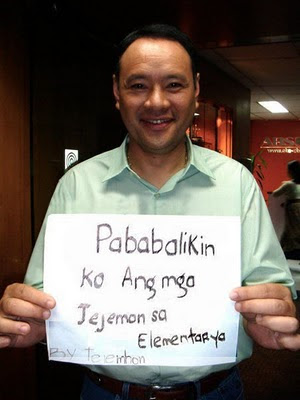 Pababalikin
ko Ang mga
Jejemon sa
Elementarya
BY